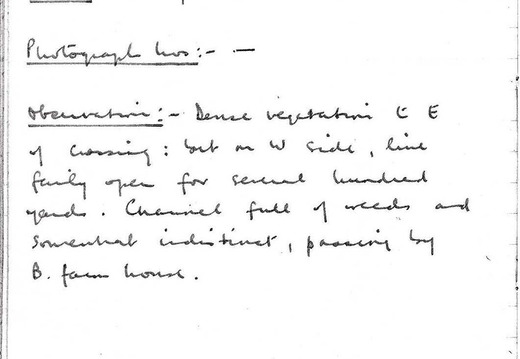 Photograph Nos:- —
Observation:- Dense vegetation t E
of crossing: but on W side, line
fairly open for several hundred
yards. Channel full of weeds and
somewhat indistinct, passing by
B. farm house.